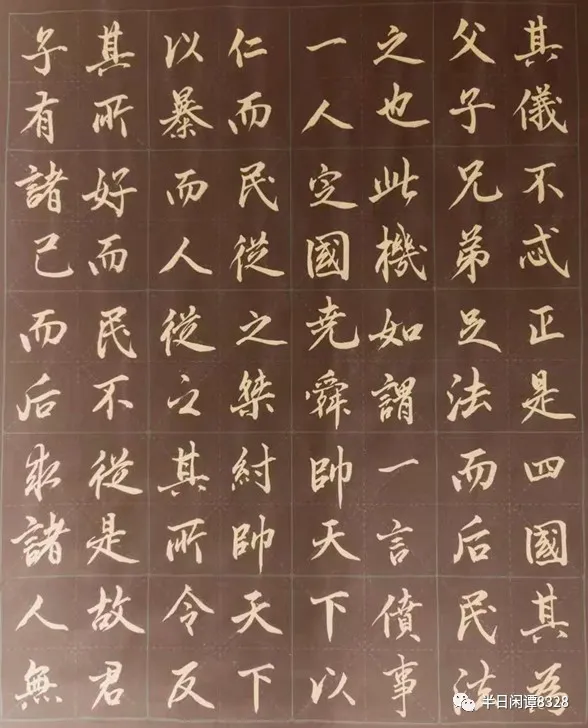 其儀不忒正是四國其為
父子兄弟足法而后民法
之也此機如謂一言僨事
一人定國堯舜帥天下以
仁而民從之桀紂帥天下
以暴而人從之其所令反
其所好而民不從是故君
子有諸己而后求諸人無
半日闲谭8328